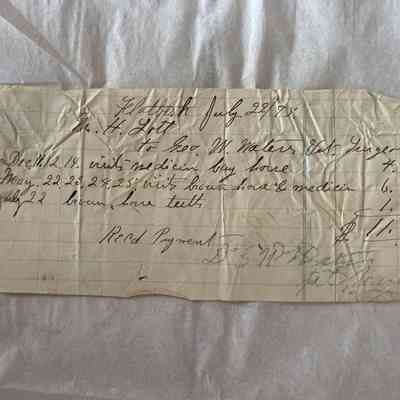 Flatbush July 29/93
Mr. H. Lott
To Geo. W. Waters Vet. Surgeon
Dec. 12, 14, visits medicin bay horse 4.
May. 22, 23, 24, 25, visits brown horse & medicin 6.
July 22 brown horse teeth 1.
$ 11.
Recd Payment
Dr G W Waters